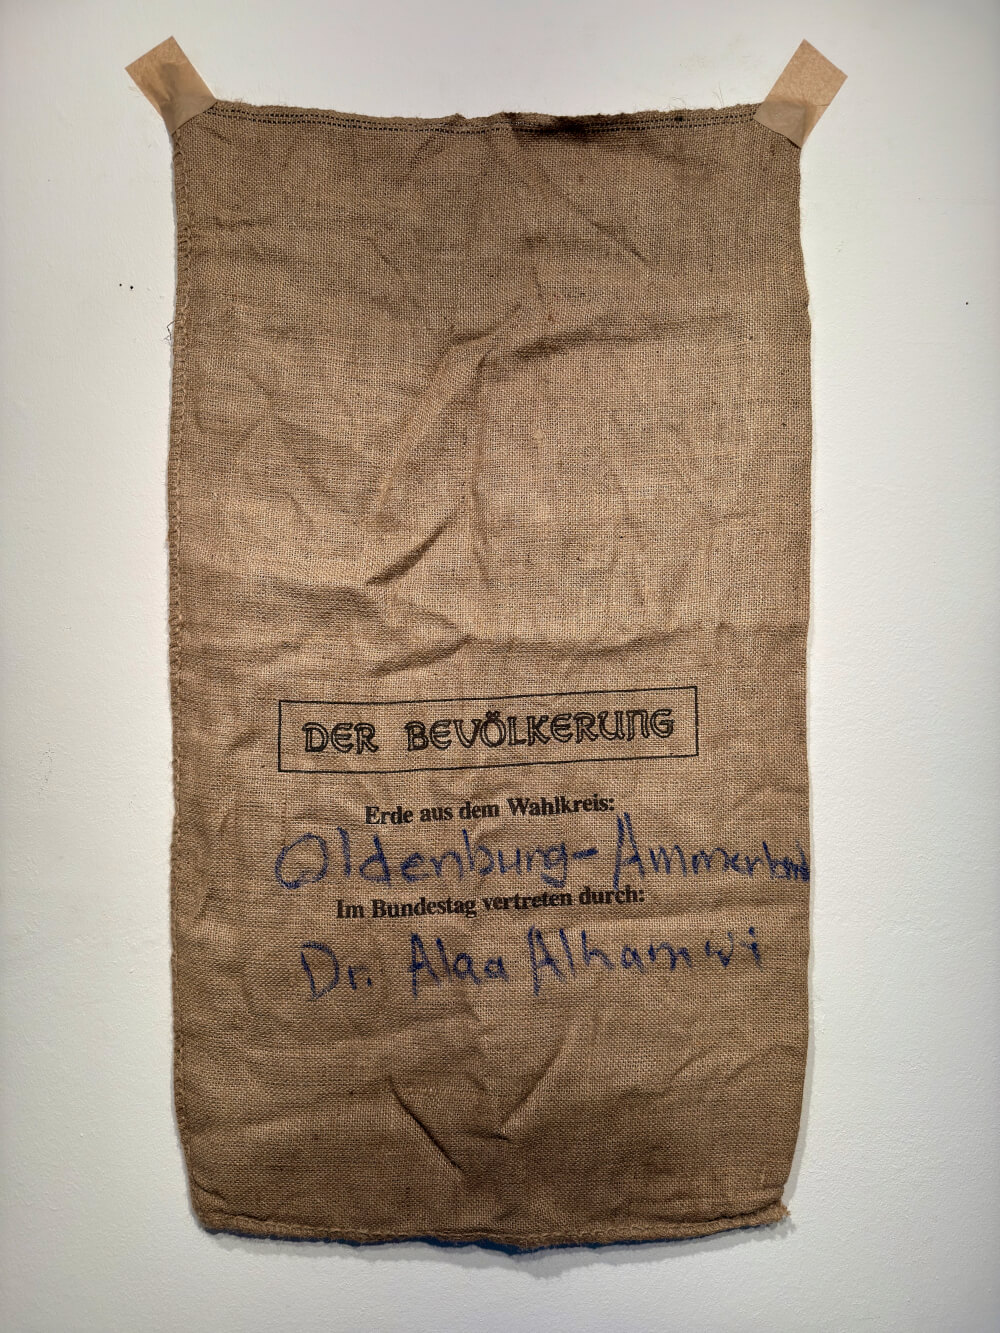 DER BEVÖLKERUNG
Erde aus dem Wahlkreis:
Oldenburg-Ammerland
Im Bundestag vertreten durch:
Dr. Alaa Alhamwi